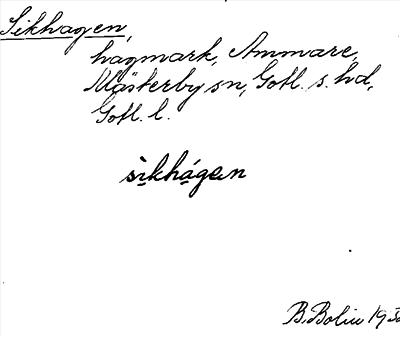 Sikhagen,
hagmark, Ammare,
Mästerby sn, Gotl. s. hd,
Gotl. l.
sìkhágen
B. Bolin 193